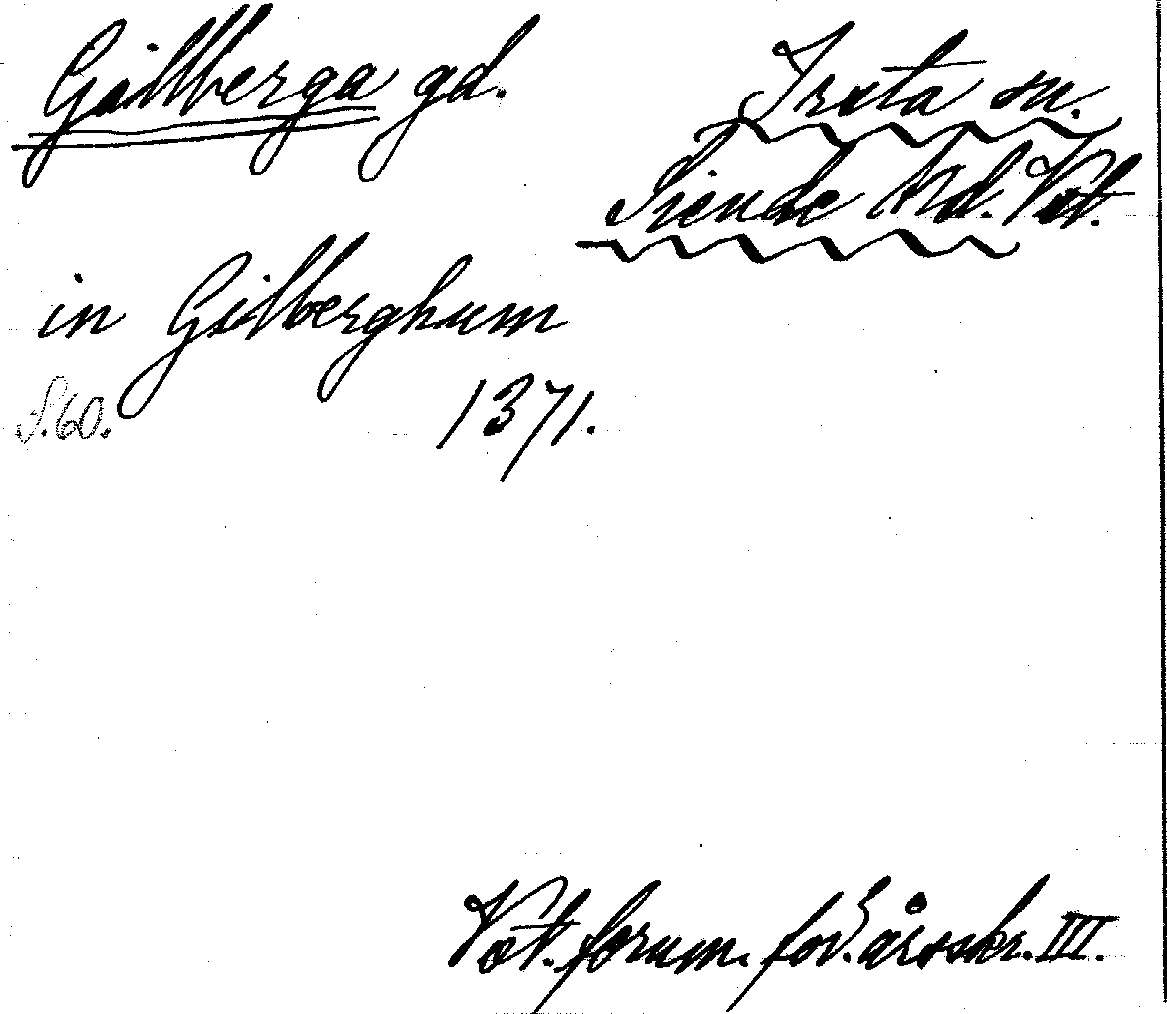 Gillberga gd.
Irsta sn.
Siende hd. Vstl.
in Gilberghum
S. 60.
1371.
Vstl. fornm. för:s årsskr. III.